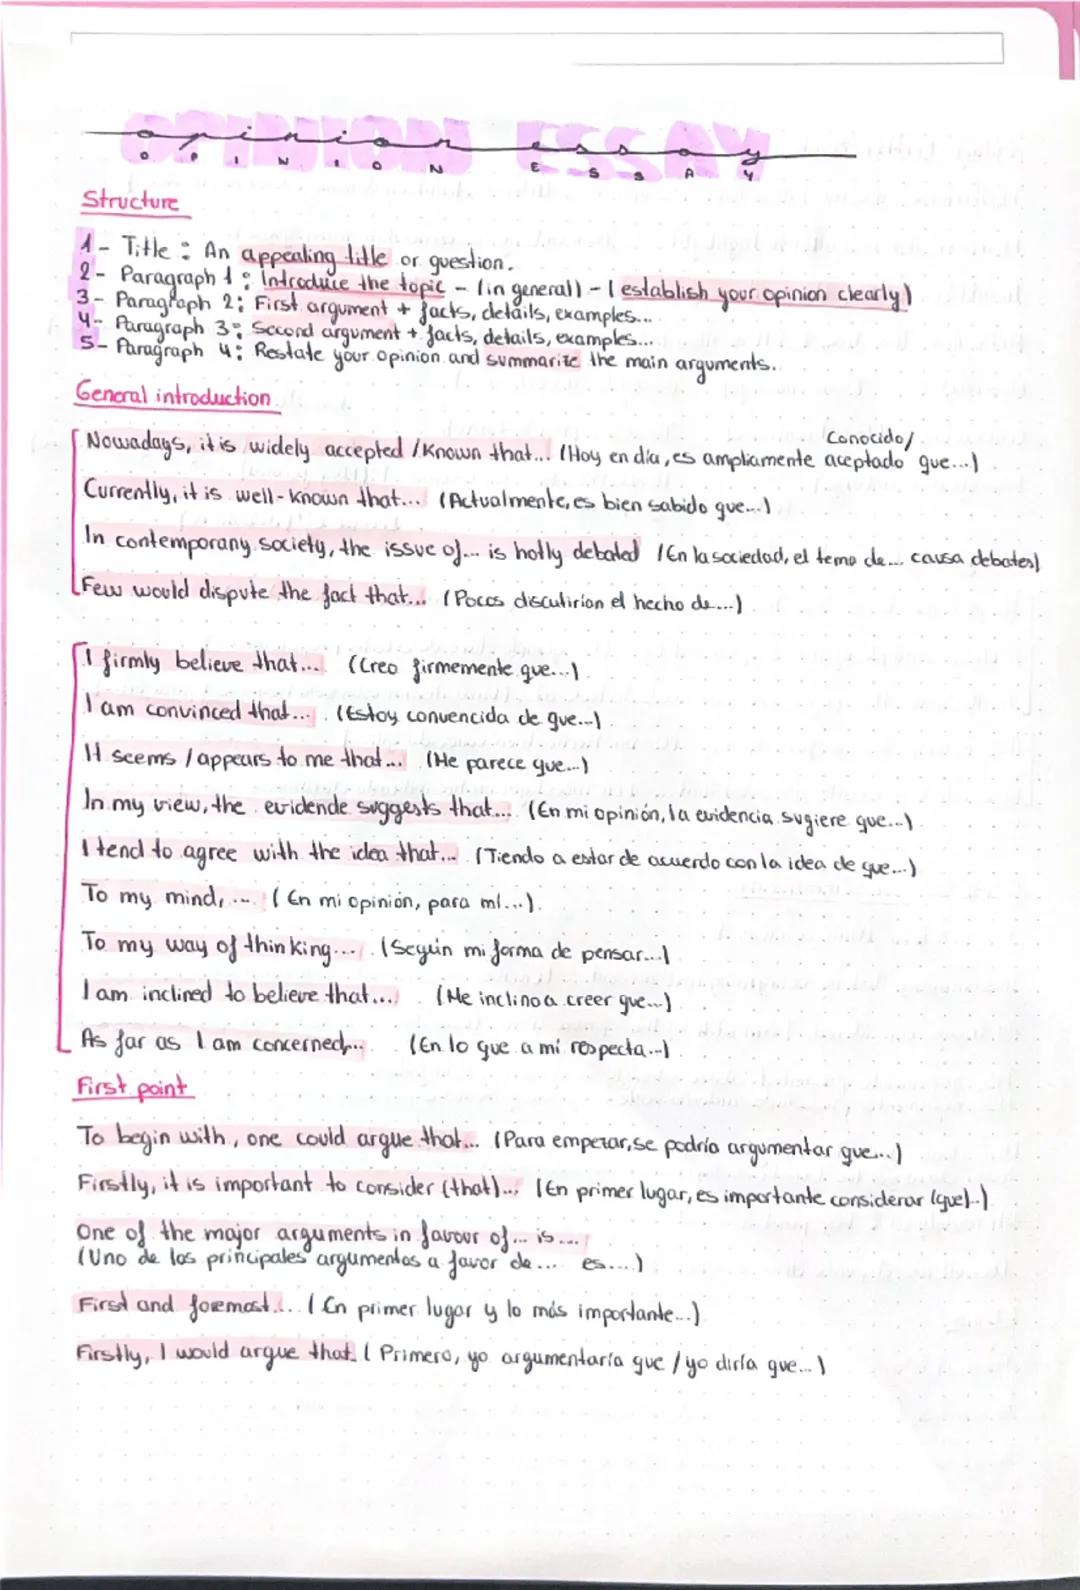 OPINION ESSAY
opinion essay
OPINION ESSAY
Structure
1- Title: An appealing title or question.
2- Paragraph 1: Introduce the topic - (in general) - (establish your opinion clearly)
3- Paragraph 2: First argument + facts, details, examples...
4- Paragraph 3: Second argument + facts, details, examples...
5- Paragraph 4: Restate your opinion and summarize the main arguments.
General introduction
Conocido/
Nowadays, it is widely accepted /Known that... (Hoy en día, es ampliamente aceptado que...)
Currently, it is well-known that... (Actualmente, es bien sabido que...)
In contemporany society, the issue of... is hotly debated (En la sociedad, el tema de... causa debates)
Few would dispute the fact that... (Pocos discutirían el hecho de...)
I firmly believe that... (Creo firmemente que...)
I am convinced that... (Estoy convencida de que...)
It seems / appears to me that... (Me parece que...)
In my view, the evidende suggests that... (En mi opinión, la evidencia sugiere que...)
I tend to agree with the idea that... (Tiendo a estar de acuerdo con la idea de que...)
To my mind, ... (En mi opinión, para mí...).
To my way of thinking... (Según mi forma de pensar...)
I am inclined to believe that... (Me inclino a creer que...)
As far as I am concerned,... (En lo que a mí respecta...)
First point
To begin with, one could argue that... (Para empezar, se podría argumentar que...)
Firstly, it is important to consider (that)... (En primer lugar, es importante considerar (que)...)
One of the major arguments in favour of... is...
(Uno de los principales argumentos a favor de... es....)
First and foremost... (En primer lugar y lo más importante...)
Firstly, I would argue that (Primero, yo argumentaría que / yo diría que...)